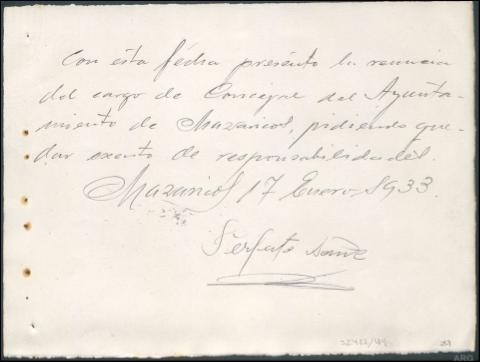 Con esta fécha presénto la renuncia
del cargo de Concegal del Ayunta-
miento de Mazaricos, pidiendo que-
dar exento de responsabilidades.
Mazaricos 17 Enero 1933.
Perfecto
ARG